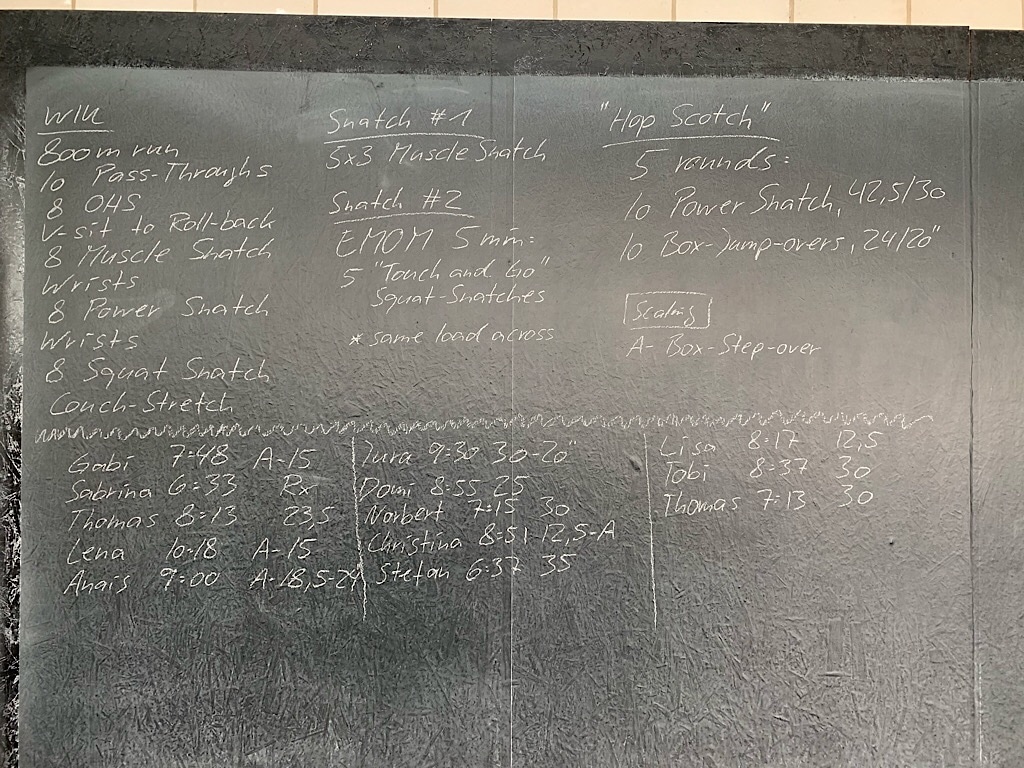 WU
800m run
10 Pass-Throughs
8 OHS
V-sit to Roll-back
8 Muscle Snatch
Wrists
8 Power Snatch
Wrists
8 Squat Snatch
Couch-Stretch
Snatch #1
5x3 Muscle Snatch
Snatch #2
EMOM 5 min:
5 "Touch and Go"
Squat-Snatches
* same load across
"Hop Scotch"
5 rounds:
10 Power Snatch, 42,5/30
10 Box-Jump-overs, 24/20"
Scaling
A- Box-Step-over
Gabi 7:48 A-15
Sabrina 6:33 Rx
Thomas 8:13 23,5
Lena 10:18 A-15
Anais 9:00 A-18,5-24
Jura 9:30 30-20"
Domi 8:55 25
Norbert 7:15 30
Christina 8:51 12,5-A
Stefan 6:37 35
Lisa 8:17 12,5
Tobi 8:37 30
Thomas 7:13 30